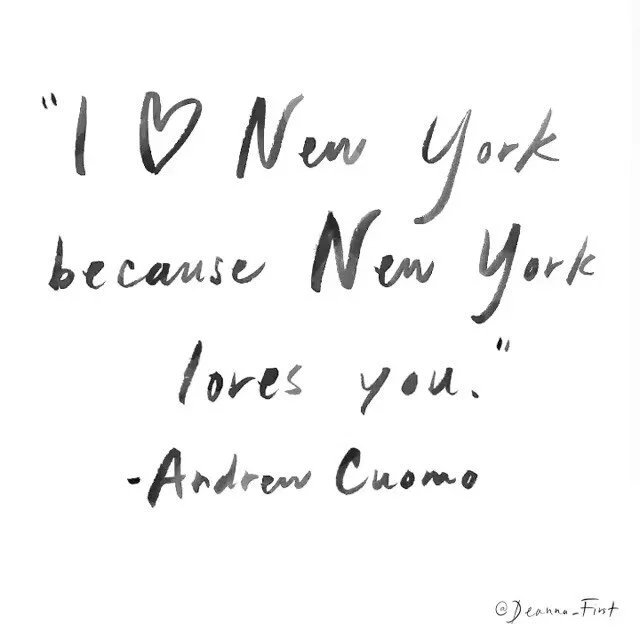 "I ♡ New York
because New York
loves you."
-Andrew Cuomo
@Deanna_First